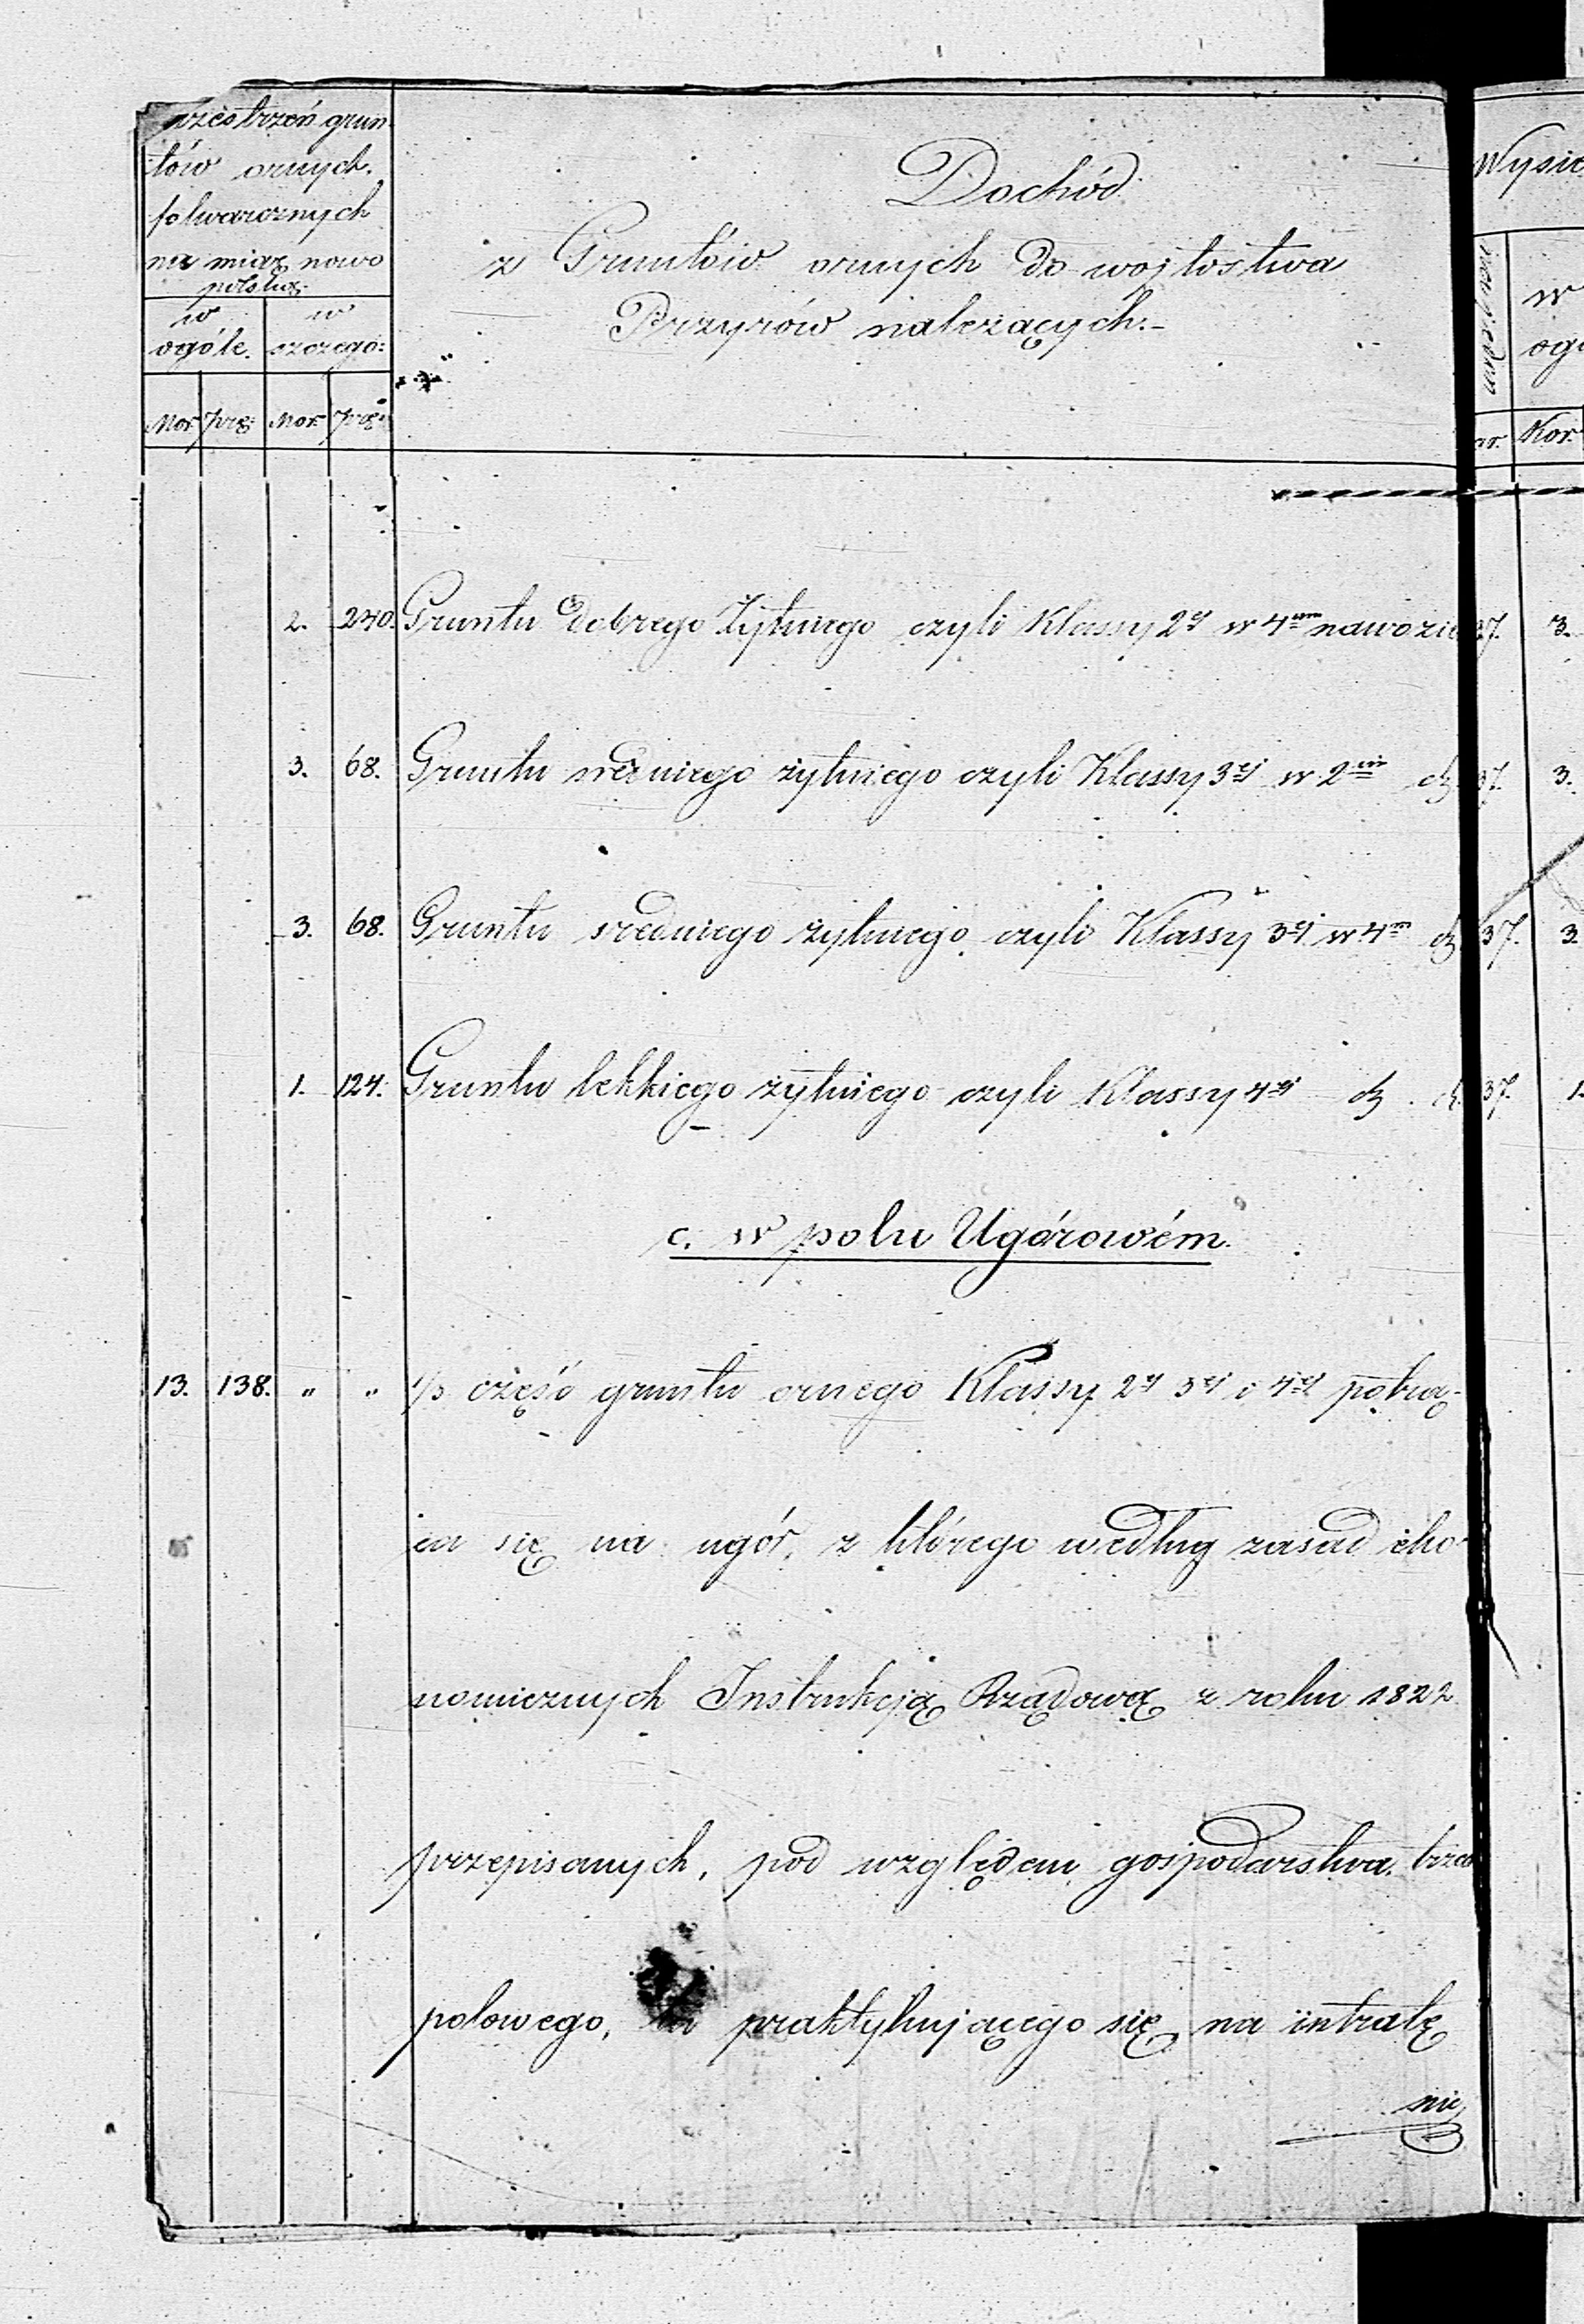 Przestrzeń grun-
tów ornych
folwarcznych
na miarę nowo
polską
w ogóle. w szczegó:
Mor. Pręt: Mor. Pręt:
Dochód
z Gruntów ornych do wójtostwa
Przyrów należących.-
Wysie
w
ogó
Kor.
2. 240. Gruntu dobrego Żytniego czyli Klassy 2ej w 4ym nawozie 37. 3.
3. 68. Gruntu średniego żytniego czyli Klassy 3ej w 2im 37. 3.
3. 68. Gruntu średniego żytniego czyli Klassy 3ej w 4m 37. 3.
1. 124. Gruntu lekkiego żytniego czyli Klassy 4ej 37. 1.
c. w polu Ugórowém.
13. 138. " " 1/3 część gruntu ornego Klassy 2ej 3ej i 4ej potrą-
ca się na ugór, z którego według zasad eko-
nomicznych Instrukcją Rządową z roku 1822
przepisanych, pod względem gospodarstwa trzech
polowego, praktykującego się na intratę
nic